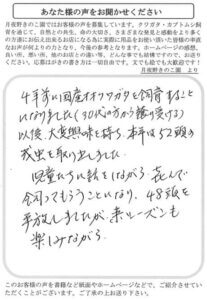 あなた様の声をお聞かせください
月夜野きのこ園ではお客様の声を募集しています。クワガタ・カブトムシ飼
育を通じて、自然との共生、命の大切さ、さまざまな発見と感動をより多く
の方達にお伝え出来るお店になる為に実際に用品をお使い頂いた皆様の率直
なお声が何よりの力となり、今後の参考となります。ホームページの感想、
良い所、悪い所、他のお店との違い等、どんな事でも結構ですので、お送り
ください。応募がお書き方は一切自由です。文でも絵でも大歓迎です!
月夜野きのこ園 より
4年前に国産オオクワガタを飼育すること
になりました(90代の方から譲り受ける)
以後、大変興味を持ち、本年は52頭の
成虫を取り出しました。
同輩たちに話をしながら、喜んで
飼ってもらうことになり、48頭を
手放しましたが、来シーズンも
楽しみながら
このお客様の声を書籍など紙面やホームページなどで、ご紹介させてい
ただくことがございます。ご了承の上お送り下さい。